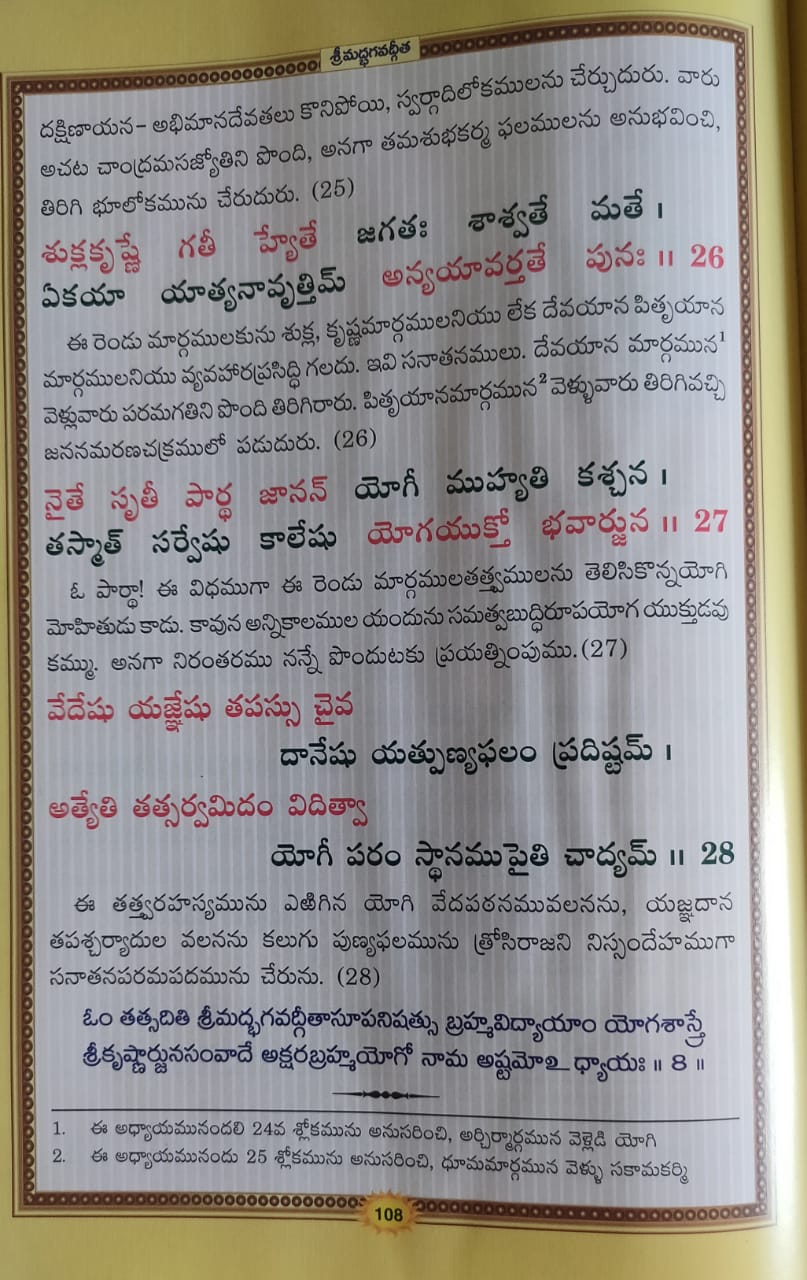 శ్రీమద్భగవద్గీత
దక్షిణాయన- అభిమానదేవతలు కొనిపోయి, స్వర్గాదిలోకములను చేర్చుదురు. వారు
అచట చాంద్రమసజ్యోతిని పొంది, అనగా తమశుభకర్మ ఫలములను అనుభవించి,
తిరిగి భూలోకమును చేరుదురు. (25)
శుక్లకృష్ణే గతీ హ్యేతే జగతః శాశ్వతే మతే ।
ఏకయా యాత్యనావృత్తిమ్ అన్యయావర్తతే పునః ॥ 26
ఈ రెండు మార్గములకును శుక్ల, కృష్ణమార్గములనియు లేక దేవయాన పితృయాన
మార్గములనియు వ్యవహారప్రసిద్ధి గలదు. ఇవి సనాతనములు. దేవయాన మార్గమున¹
వెళ్లువారు పరమగతిని పొంది తిరిగిరారు. పితృయానమార్గమున² వెళ్ళువారు తిరిగివచ్చి
జననమరణచక్రములో పడుదురు. (26)
నైతే సృతీ పార్థ జానన్ యోగీ ముహ్యతి కశ్చన ।
తస్మాత్ సర్వేషు కాలేషు యోగయుక్తో భవార్జున ॥ 27
ఓ పార్థా! ఈ విధముగా ఈ రెండు మార్గములతత్త్వములను తెలిసికొన్నయోగి
మోహితుడు కాడు. కావున అన్నికాలముల యందును సమత్వబుద్ధిరూపయోగ యుక్తుడవు
కమ్ము. అనగా నిరంతరము నన్నే పొందుటకు ప్రయత్నింపుము.(27)
వేదేషు యజ్ఞేషు తపస్సు చైవ
దానేషు యత్పుణ్యఫలం ప్రదిష్టమ్ ।
అత్యేతి తత్సర్వమిదం విదిత్వా
యోగీ పరం స్థానముపైతి చాద్యమ్ ॥ 28
ఈ తత్త్వరహస్యమును ఎఱిగిన యోగి వేదపఠనమువలనను, యజ్ఞదాన
తపశ్చర్యాదుల వలనను కలుగు పుణ్యఫలమును త్రోసిరాజని నిస్సందేహముగా
సనాతనపరమపదమును చేరును. (28)
ఓం తత్సదితి శ్రీమద్భగవద్గీతాసూపనిషత్సు బ్రహ్మవిద్యాయాం యోగశాస్త్రే
శ్రీకృష్ణార్జునసంవాదే అక్షరబ్రహ్మయోగో నామ అష్టమోఽ ధ్యాయః ॥ 8 ॥
1. ఈ అధ్యాయమునందలి 24వ శ్లోకమును అనుసరించి, అర్చిర్మార్గమున వెళ్లెడి యోగి
2. ఈ అధ్యాయమునందు 25 శ్లోకమును అనుసరించి, ధూమమార్గమున వెళ్ళు సకామకర్మి
108